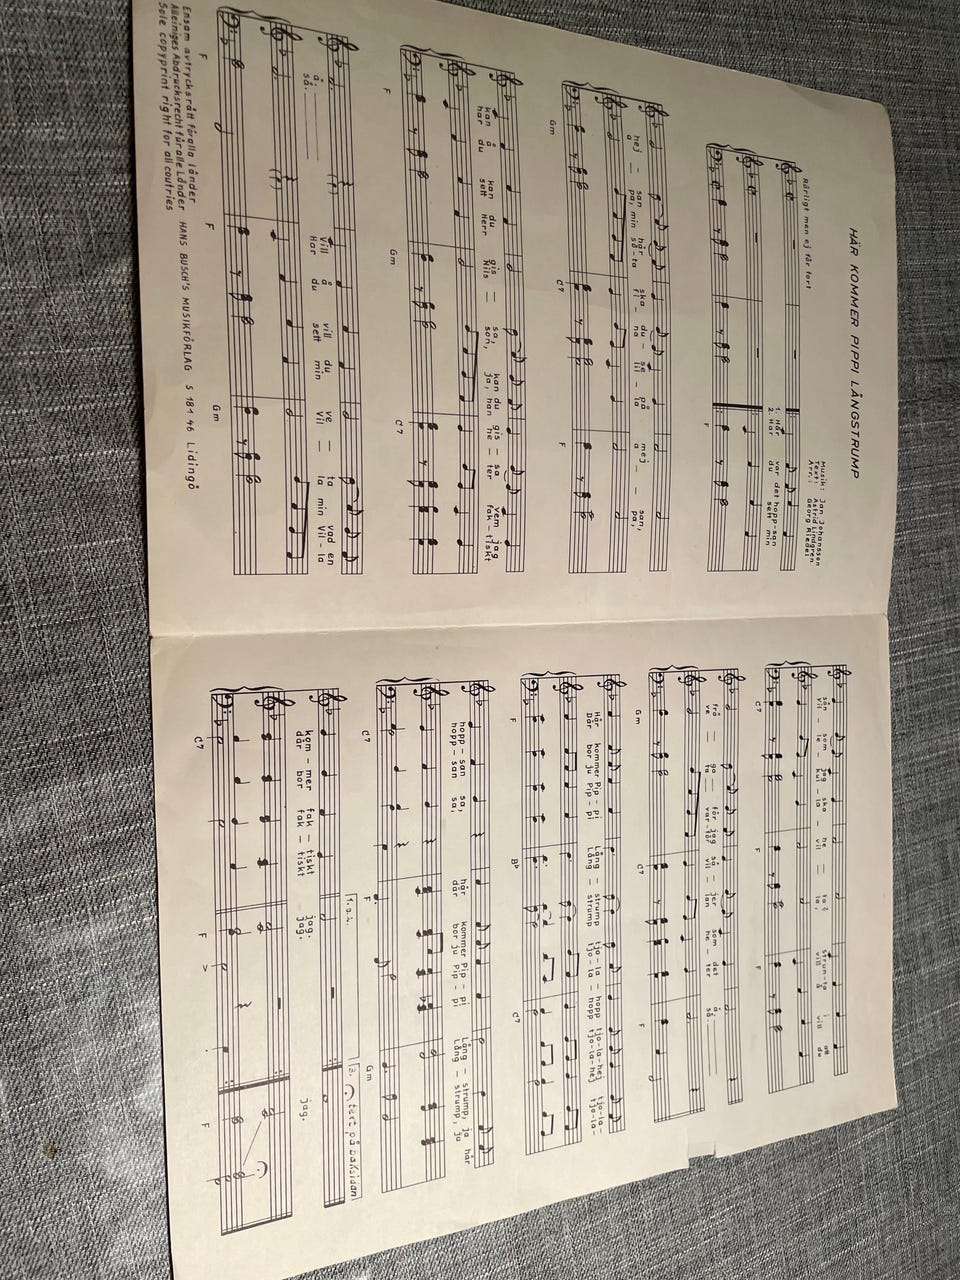 HÄR KOMMER PIPPI LÅNGSTRUMP
Musik: Jan Johansson
Text: Astrid Lindgren
Arr.: Georg Riedel
Rörligt men ej för fort
1. Här var det hopp-san
2. Har du sett min
F
hej – san här ska du se på mej – san,
a pa, min sö-ta fi-na lil-la a – pa,
Gm C7 F
kan å kan du gis – sa, kan du gis – sa vem jag
har du sett Herr Nils – son, ja, han he – ter fak-tiskt
F Gm C7
ä. Vill å vill du ve – ta vad en
så. Har du sett min Vil – la min Vil-la
F F Gm
Ensam avtrycksrätt för alla länder
Alleiniges Abdrucksrecht für alle Länder HANS BUSCH'S MUSIKFÖRLAG S 181 46 Lidingö
Sole copyprint right for all coutries
sån som jag ska he – ta? strun-ta i om
Vil – le – kul – la – vil – la, vill å vill du
C7 F F
frå – ga för jag sä – jer som det ä.
ve – ta var-för vil – lan he – ter så.
Gm C7 F
Här kommer Pip – pi Lång – strump tjo-la – hopp tjo-la-hej tjo-la-
Där bor ju Pip – pi Lång – strump tjo-la – hopp tjo-la-hej tjo-la-
F B♭ C7
hopp-san sa, här kommer Pip – pi Lång – strump, ja här
hopp-san sa, där bor ju Pip – pi Lång – strump, ja
C7 F Gm
1. o. 2. 3. tort på baksidan
kom-mer fak – tiskt jag. jag.
där bor fak – tiskt jag.
C7 F F